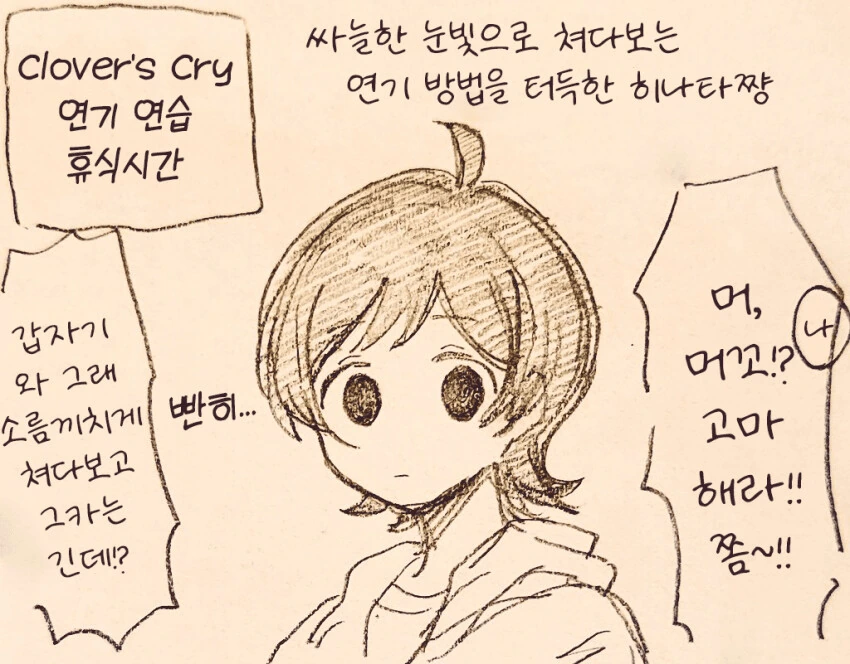 Clover's Cry
연기 연습
휴식시간
싸늘한 눈빛으로 쳐다보는
연기 방법을 터득한 히나타쨩
갑자기
와 그래
소름끼치게
쳐다보고
그카는
긴데!?
빤히...
머,
머꼬!?
고마
해라!!
쫌~!!
나